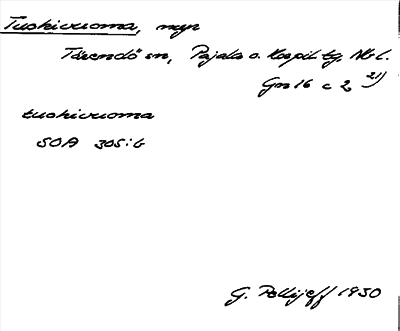 Tuohivuoma, myr
Tärendö sn, Pajala o. Korpil. tg, Nb l.
Gn 16 c 2 21)
tuohivuoma
SOA 305:6
G. Pellijeff 1950